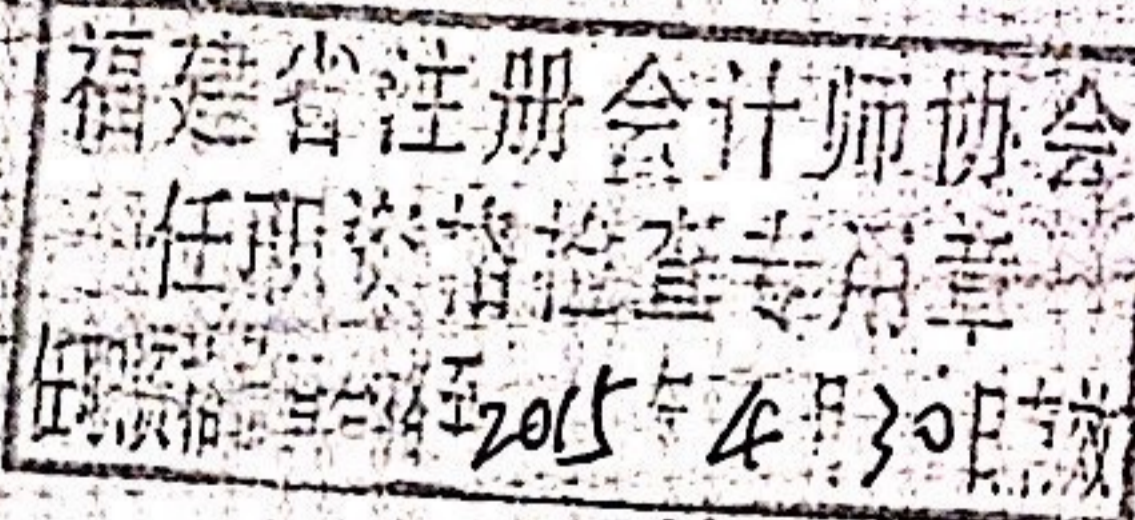 福建省注册会计师协会
任职资格检查专用章
任职资格 至2015年4月30日有效